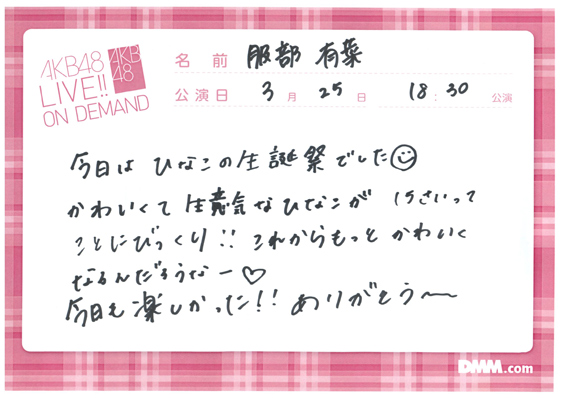 AKB48
LIVE!!
ON DEMAND
AKB
48
名前 服部 有菜
公演日 3月 25日 18:30 公演
今日は ひなこの生誕祭でした
かわいくて 生意気なひなこが 15さいって
ことにびっくり!! これからもっと かわいく
なるんだろうなー♡
今日も楽しかった!! ありがとう〜
DMM.com